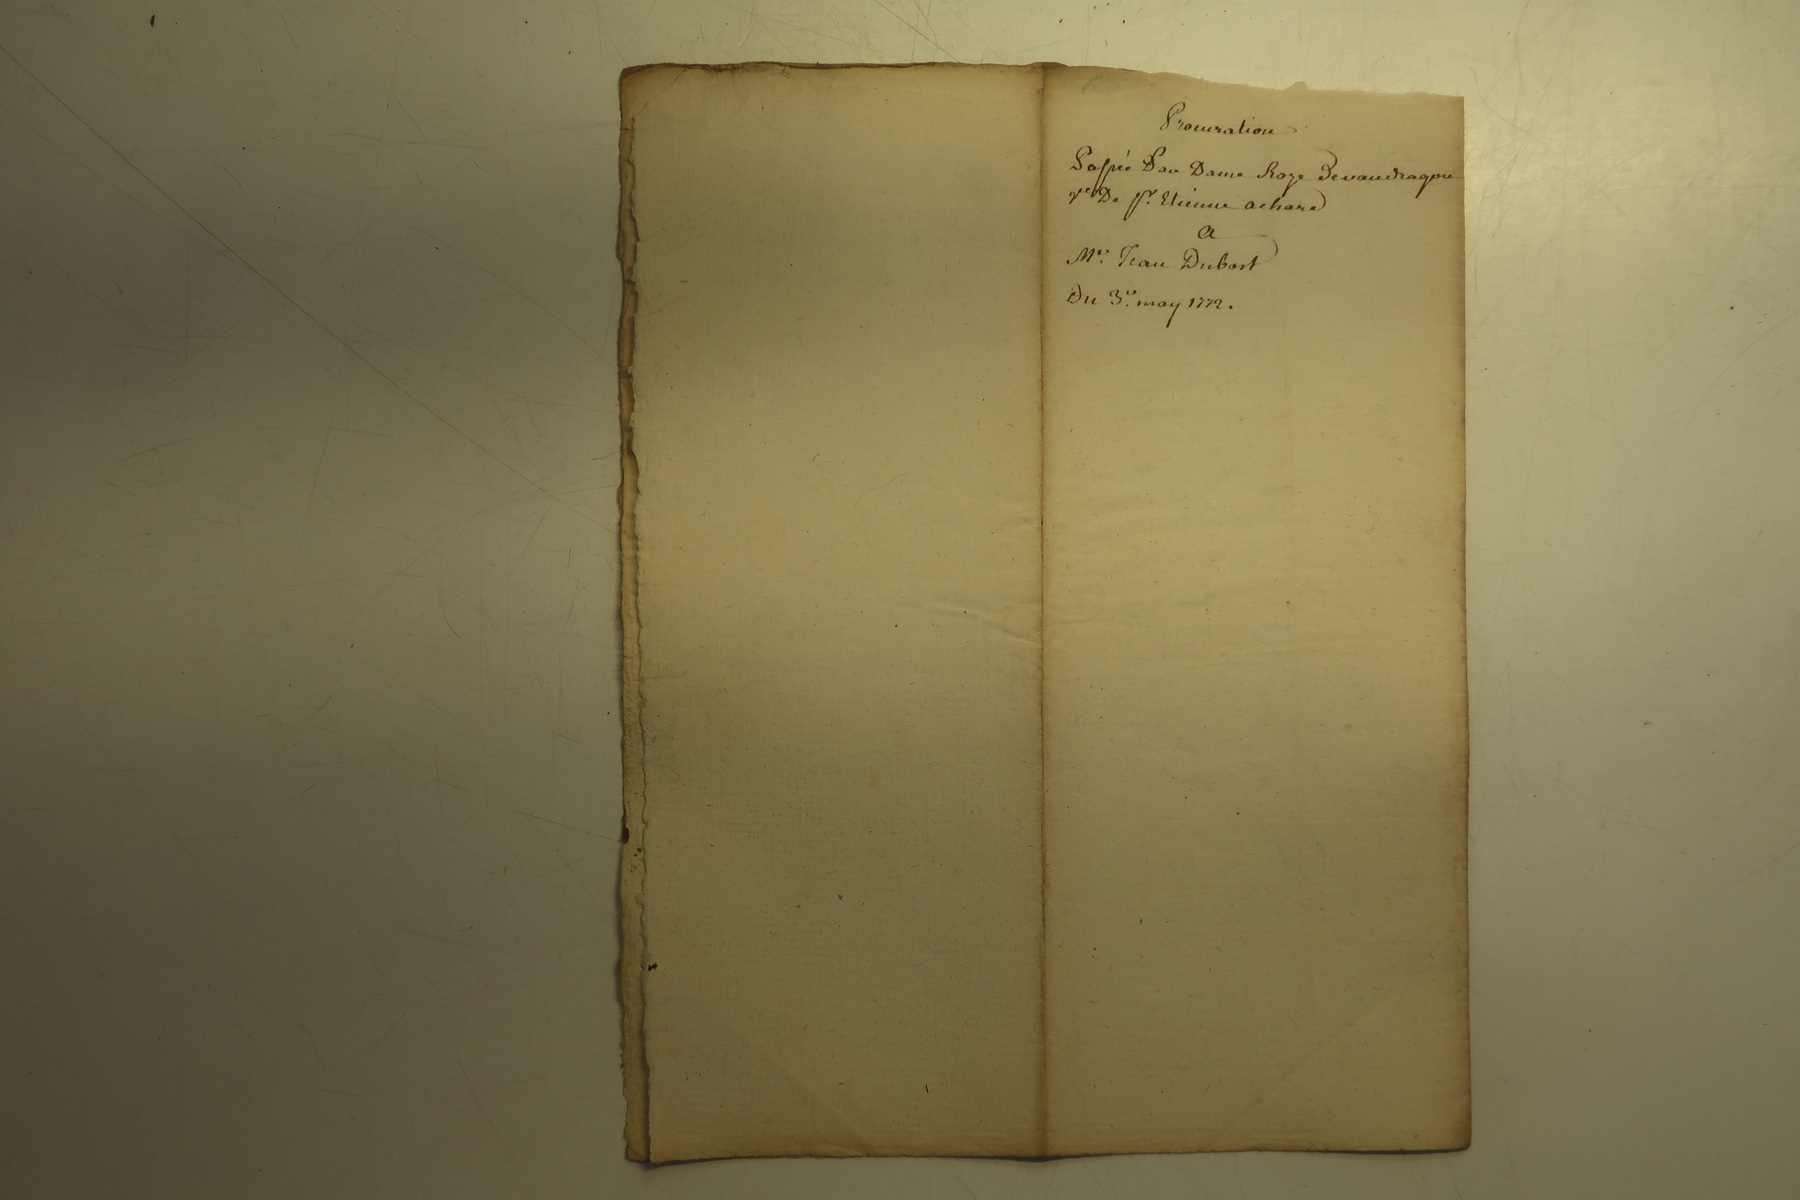 Procuration
Passée Par Dame Roze Devaudragon
Ve De Sr. Etienne achard
a
Mr. Jean Dubost
Du 3e. may 1772.